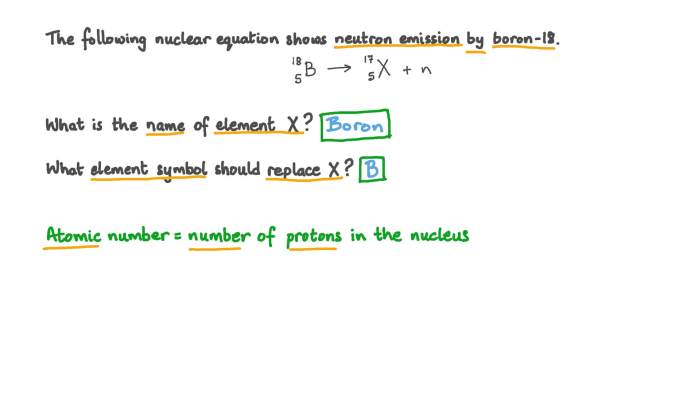 The following nuclear equation shows neutron emission by boron-18.
¹⁸₅B → ¹⁷₅X + n
What is the name of element X? Boron
What element symbol should replace X? B
Atomic number = number of protons in the nucleus